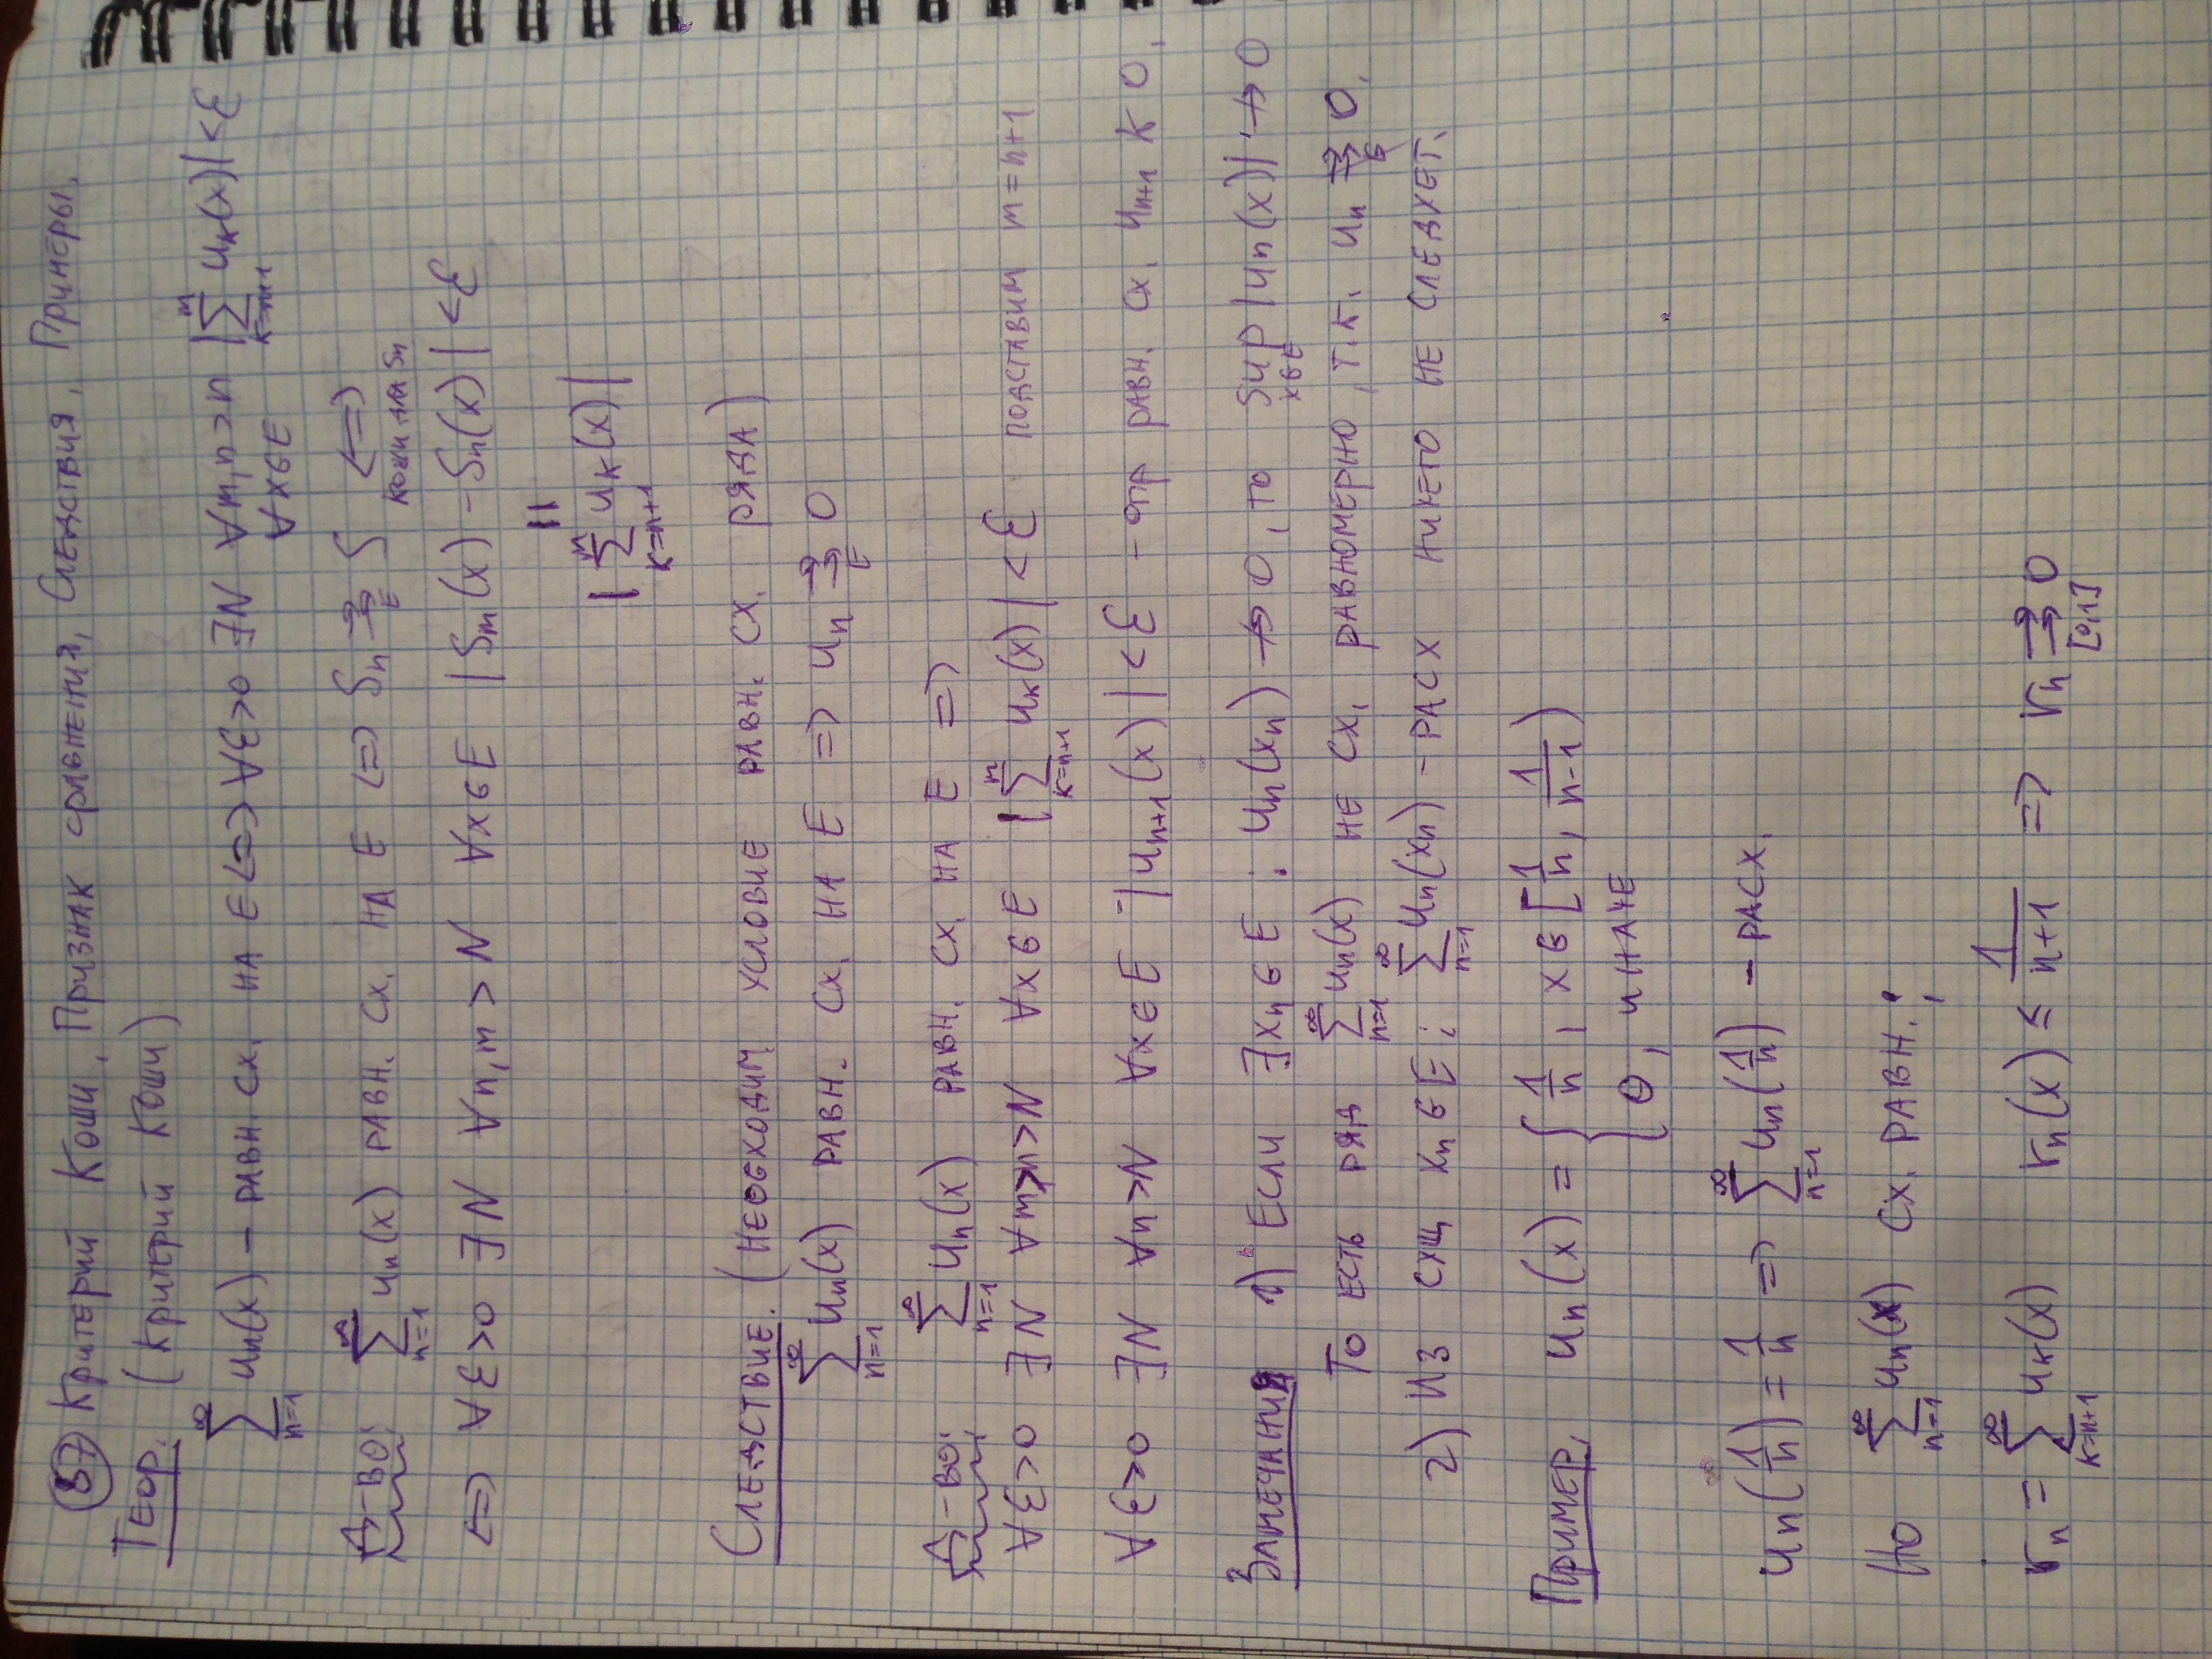 87 Критерий Коши. Признак сравнения. Следствия. Примеры.
Теор. (Критерий Коши)
∑_{n=1}^{∞} u_n(x) – равн. сх. на E <=> ∀ε>0 ∃N ∀m,n>n ∀x∈E |∑_{k=m+1}^{m} u_k(x)|<ε
Д-во: ∑_{n=1}^{∞} u_n(x) равн. сх. на E <=> S_n ⇉_E S <=> Коши для S_n
<=> ∀ε>0 ∃N ∀n,m > N ∀x∈E |S_m(x) – S_n(x)| <ε
||
|∑_{k=n+1}^{m} u_k(x)|
Следствие. (необходим. условие равн. сх. ряда)
∑_{n=1}^{∞} u_n(x) равн. сх. на E => u_n ⇉_E 0
Д-во: ∑_{n=1}^{∞} u_n(x) равн. сх. на E =>
∀ε>0 ∃N ∀m>n>N ∀x∈E |∑_{k=n+1}^{m} u_k(x)| <ε подставим m=n+1
∀ε>0 ∃N ∀n>N ∀x∈E |u_{n+1}(x)|<ε – опр равн. сх. u_{n+1} к 0.
Замечания 1) Если ∃x_n∈E : u_n(x_n) ↛ 0, то sup_{x∈E} |u_n(x)| ↛ 0
То есть ряд ∑_{n=1}^{∞} u_n(x) не сх. равномерно, т.к. u_n ⇉̸_E 0.
2) Из сущ x_n∈E: ∑_{n=1}^{∞} u_n(x_n) – расх ничего не следует.
Пример. u_n(x) = { 1/n , x∈[1/n, 1/(n-1))
0, иначе
u_n(1/n) = 1/n => ∑_{n=1}^{∞} u_n(1/n) – расх.
Но ∑_{n=1}^{∞} u_n(x) сх. равн.:
r_n = ∑_{k=n+1}^{∞} u_k(x) r_n(x) ≤ 1/(n+1) => r_n ⇉_{[0,1]} 0